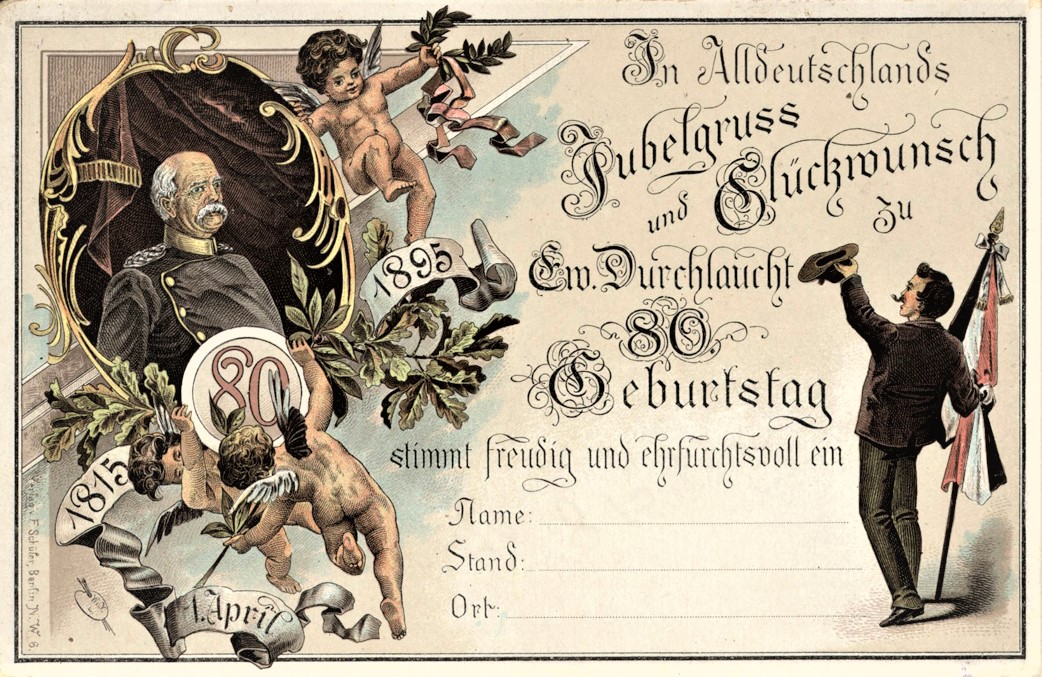 In Alldeutschlands
Jubelgruss
und Glückwunsch
zu
Ew. Durchlaucht
80.
Geburtstag
stimmt freudig und ehrfurchtsvoll ein
Name:
Stand:
Ort:
1895
80
1815
1. April
Verlag v. F. Schüler, Berlin N.W. 6.